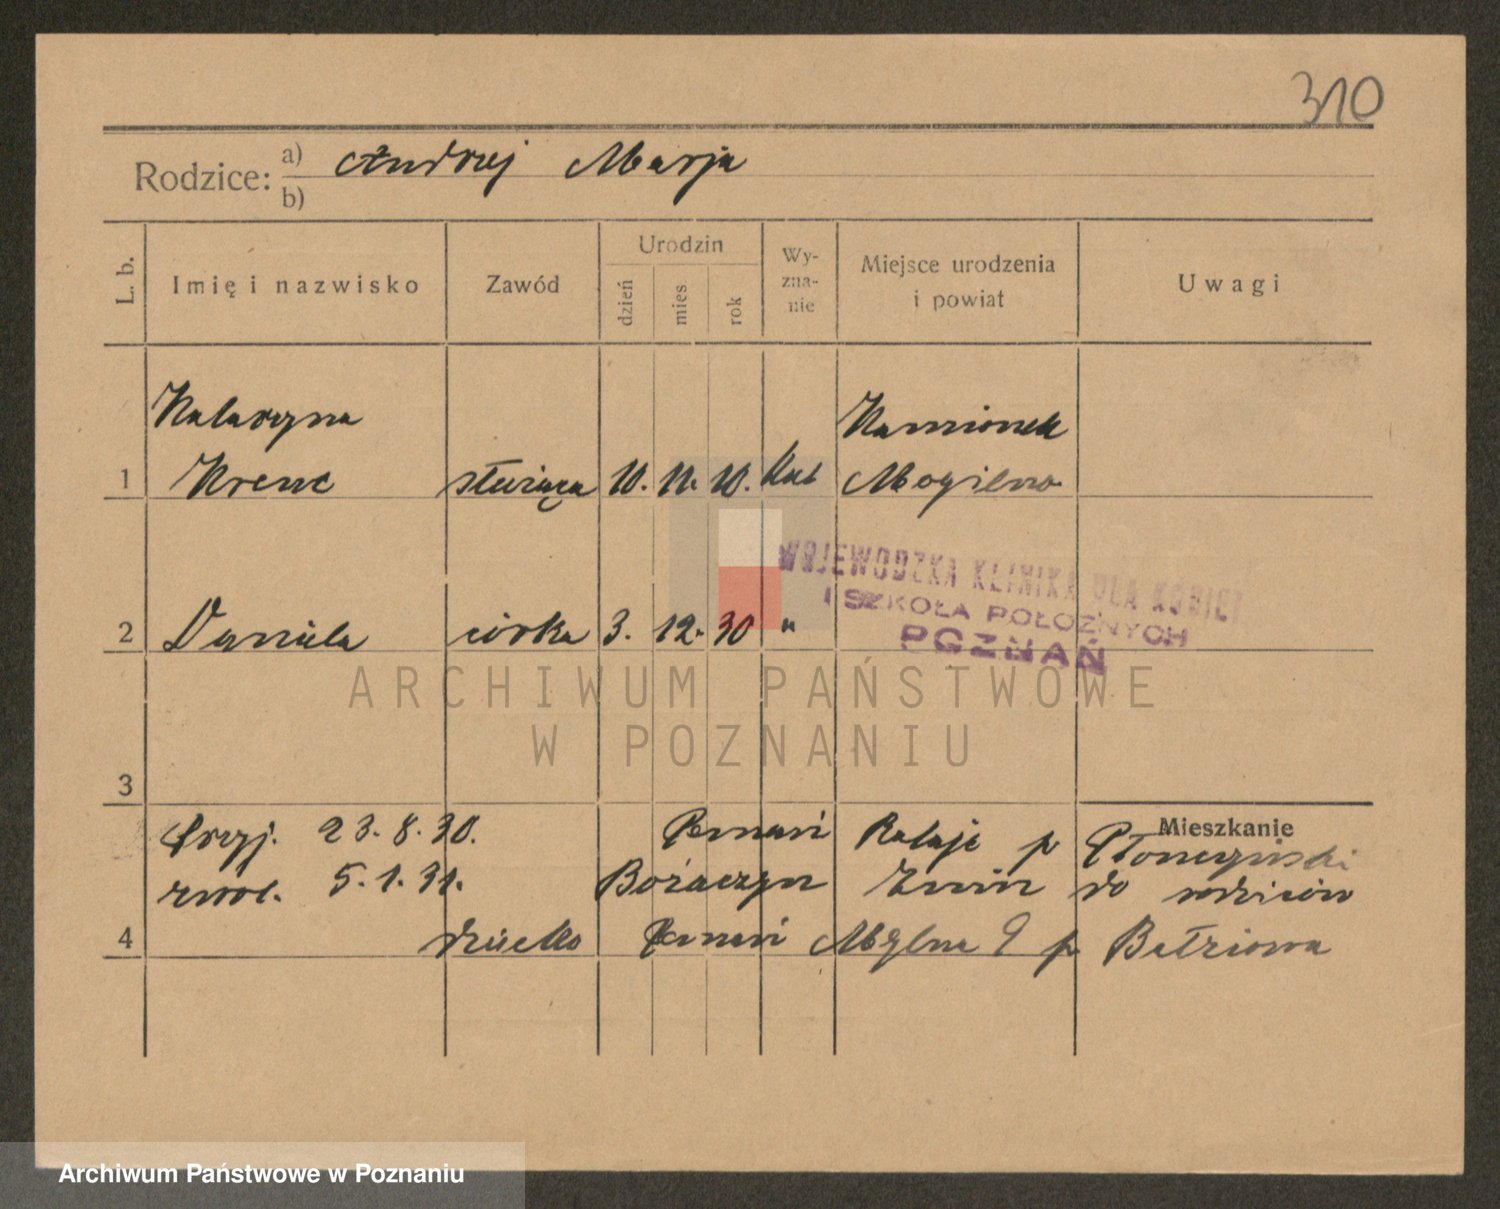 310
Rodzice: a) Andrzej Marja
b)
L. b.
Imię i nazwisko
Zawód
Urodzin
dzień
mies
rok
Wy-
zna-
nie
Miejsce urodzenia
i powiat
Uwagi
Katarzyna Kamionek
1 Krenc służąca 10. 11. 10. Kat Mogilno
WOJEWÓDZKA KLINIKA DLA KOBIET
I SZKOŁA POŁOŻNYCH
POZNAŃ
2 Daniela córka 3. 12. 30 "
ARCHIWUM PAŃSTWOWE
W POZNANIU
3
Mieszkanie
przyj. 23. 8. 30. Poznań Rataje p
zwol. 5. 1. 31. Żnin do rodziców
4 dziecko Poznań 9 p
Archiwum Państwowe w Poznaniu